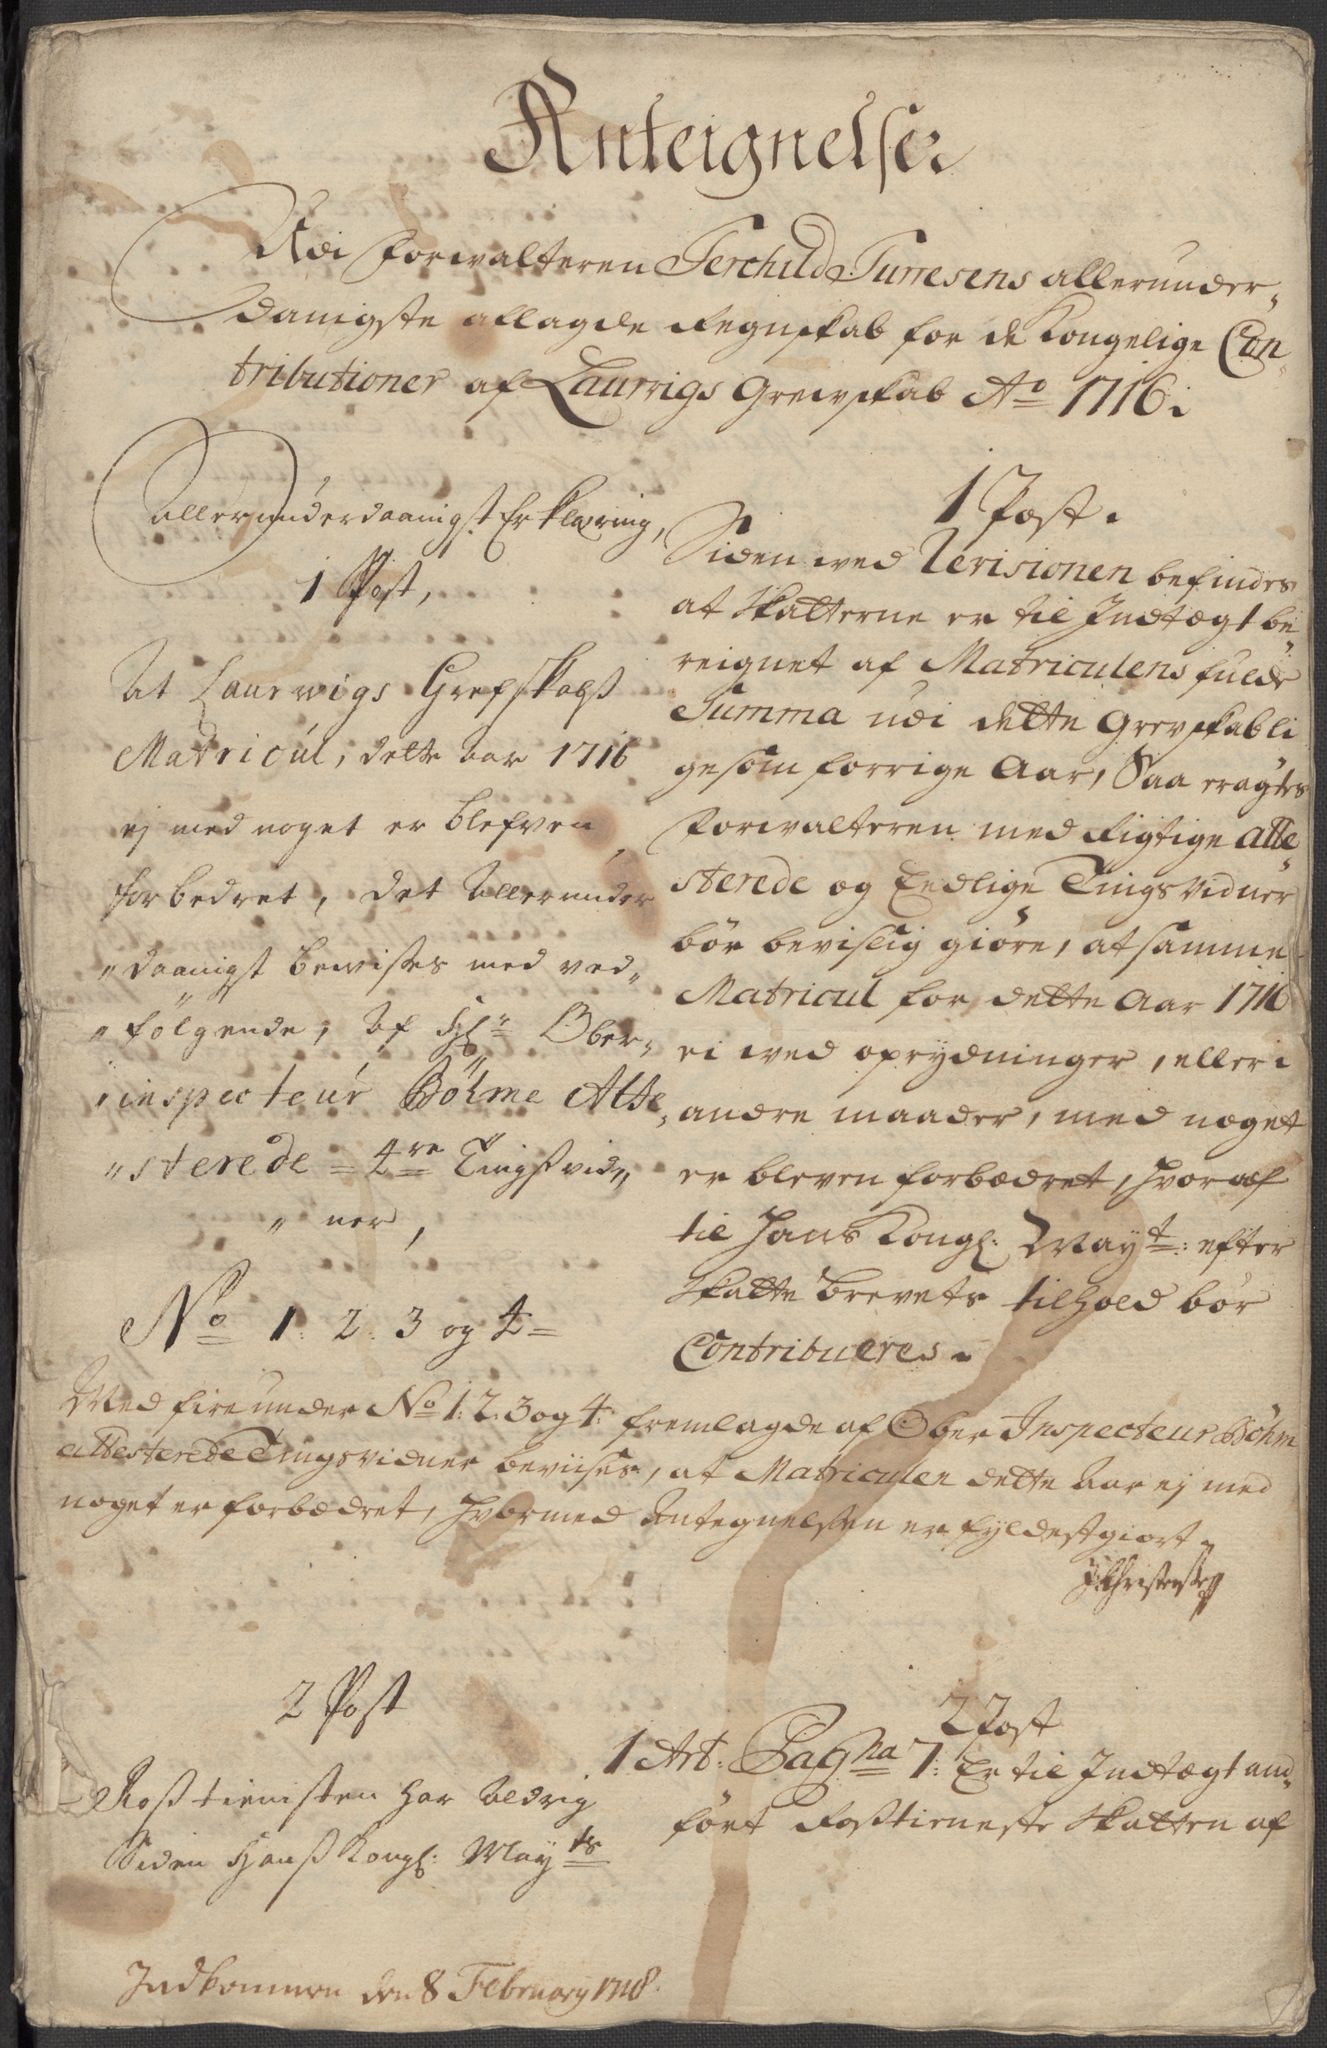 Anteignelser
Udi Forvalteren Terchild Turresens allerunder„
danigste aflagde Regnskab for de Kongelige Con„
tributioner af Laurvigs Grevskab Ao 1716.
Allerunderdaanigst Erklæring,
1 Post,
At Laurwigs Grefskabß
Matricul, dette aar 1716
ej med noget er blefven
forbedret, det allerunder
„daanigst bewißes med ved„
„følgende, af Hr Ober„
„inspecteur Böhme Atte„
„sterede 4re Tingßvid„
„ner,
No 1. 2. 3 og 4
1 Post.
Siden wed Revisionen befindes
at Skatterne er til Indtægt be„
reignet af Matriculens fulde
Summa udi dette Grevskab li
gesom forrige Aar, Saa eragtes
Forwalteren med Rigtige atte„
sterede og Endlige Tings Vidner
bør bevislig giøre, at samme
Matricul for dette Aar 1716
ei wed oprydninger, eller i
andre maader, med noget
er bleven forbedret, hvor af
til Hans Kongl: Mayt: efter
Skatte Brevets tilhold bør
Contribueres.
Med fire under No 1. 2. 3 og 4. fremlagde af Ober Inspecteur Böhm
attesterede Tingsvidner beviises, at Matriculen dette aar ej med
noget er forbedret, hvormed Antegnelsen er fyldestgiort.
JChristensen
2 Post
Roßtienisten har aldrig
Siden Hanß Kongl: Mayts
2 Post
1 Art: Pagna 7: Er til Indtægt an„
ført Roßtieneste Skatten af
Indkommen den 8 February 1718.